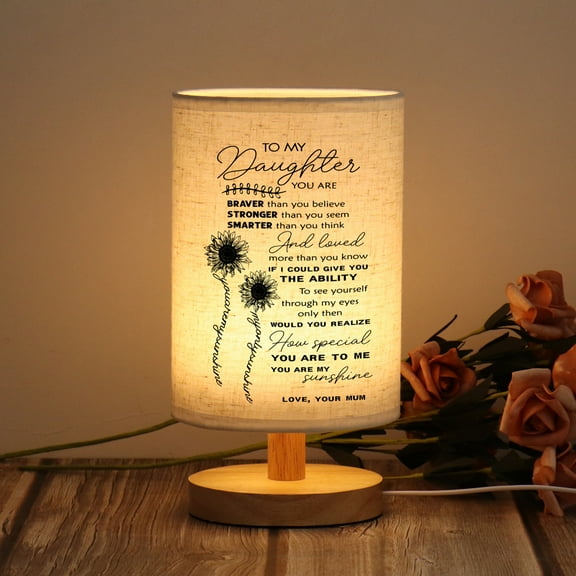 TO MY
Daughter
YOU ARE
BRAVER than you believe
STRONGER than you seem
SMARTER than you think
And loved
more than you know
IF I COULD GIVE YOU
THE ABILITY
To see yourself
through my eyes
only then
WOULD YOU REALIZE
How special
YOU ARE TO ME
YOU ARE MY
sunshine
LOVE, YOUR MUM
you are my sunshine
my only sunshine